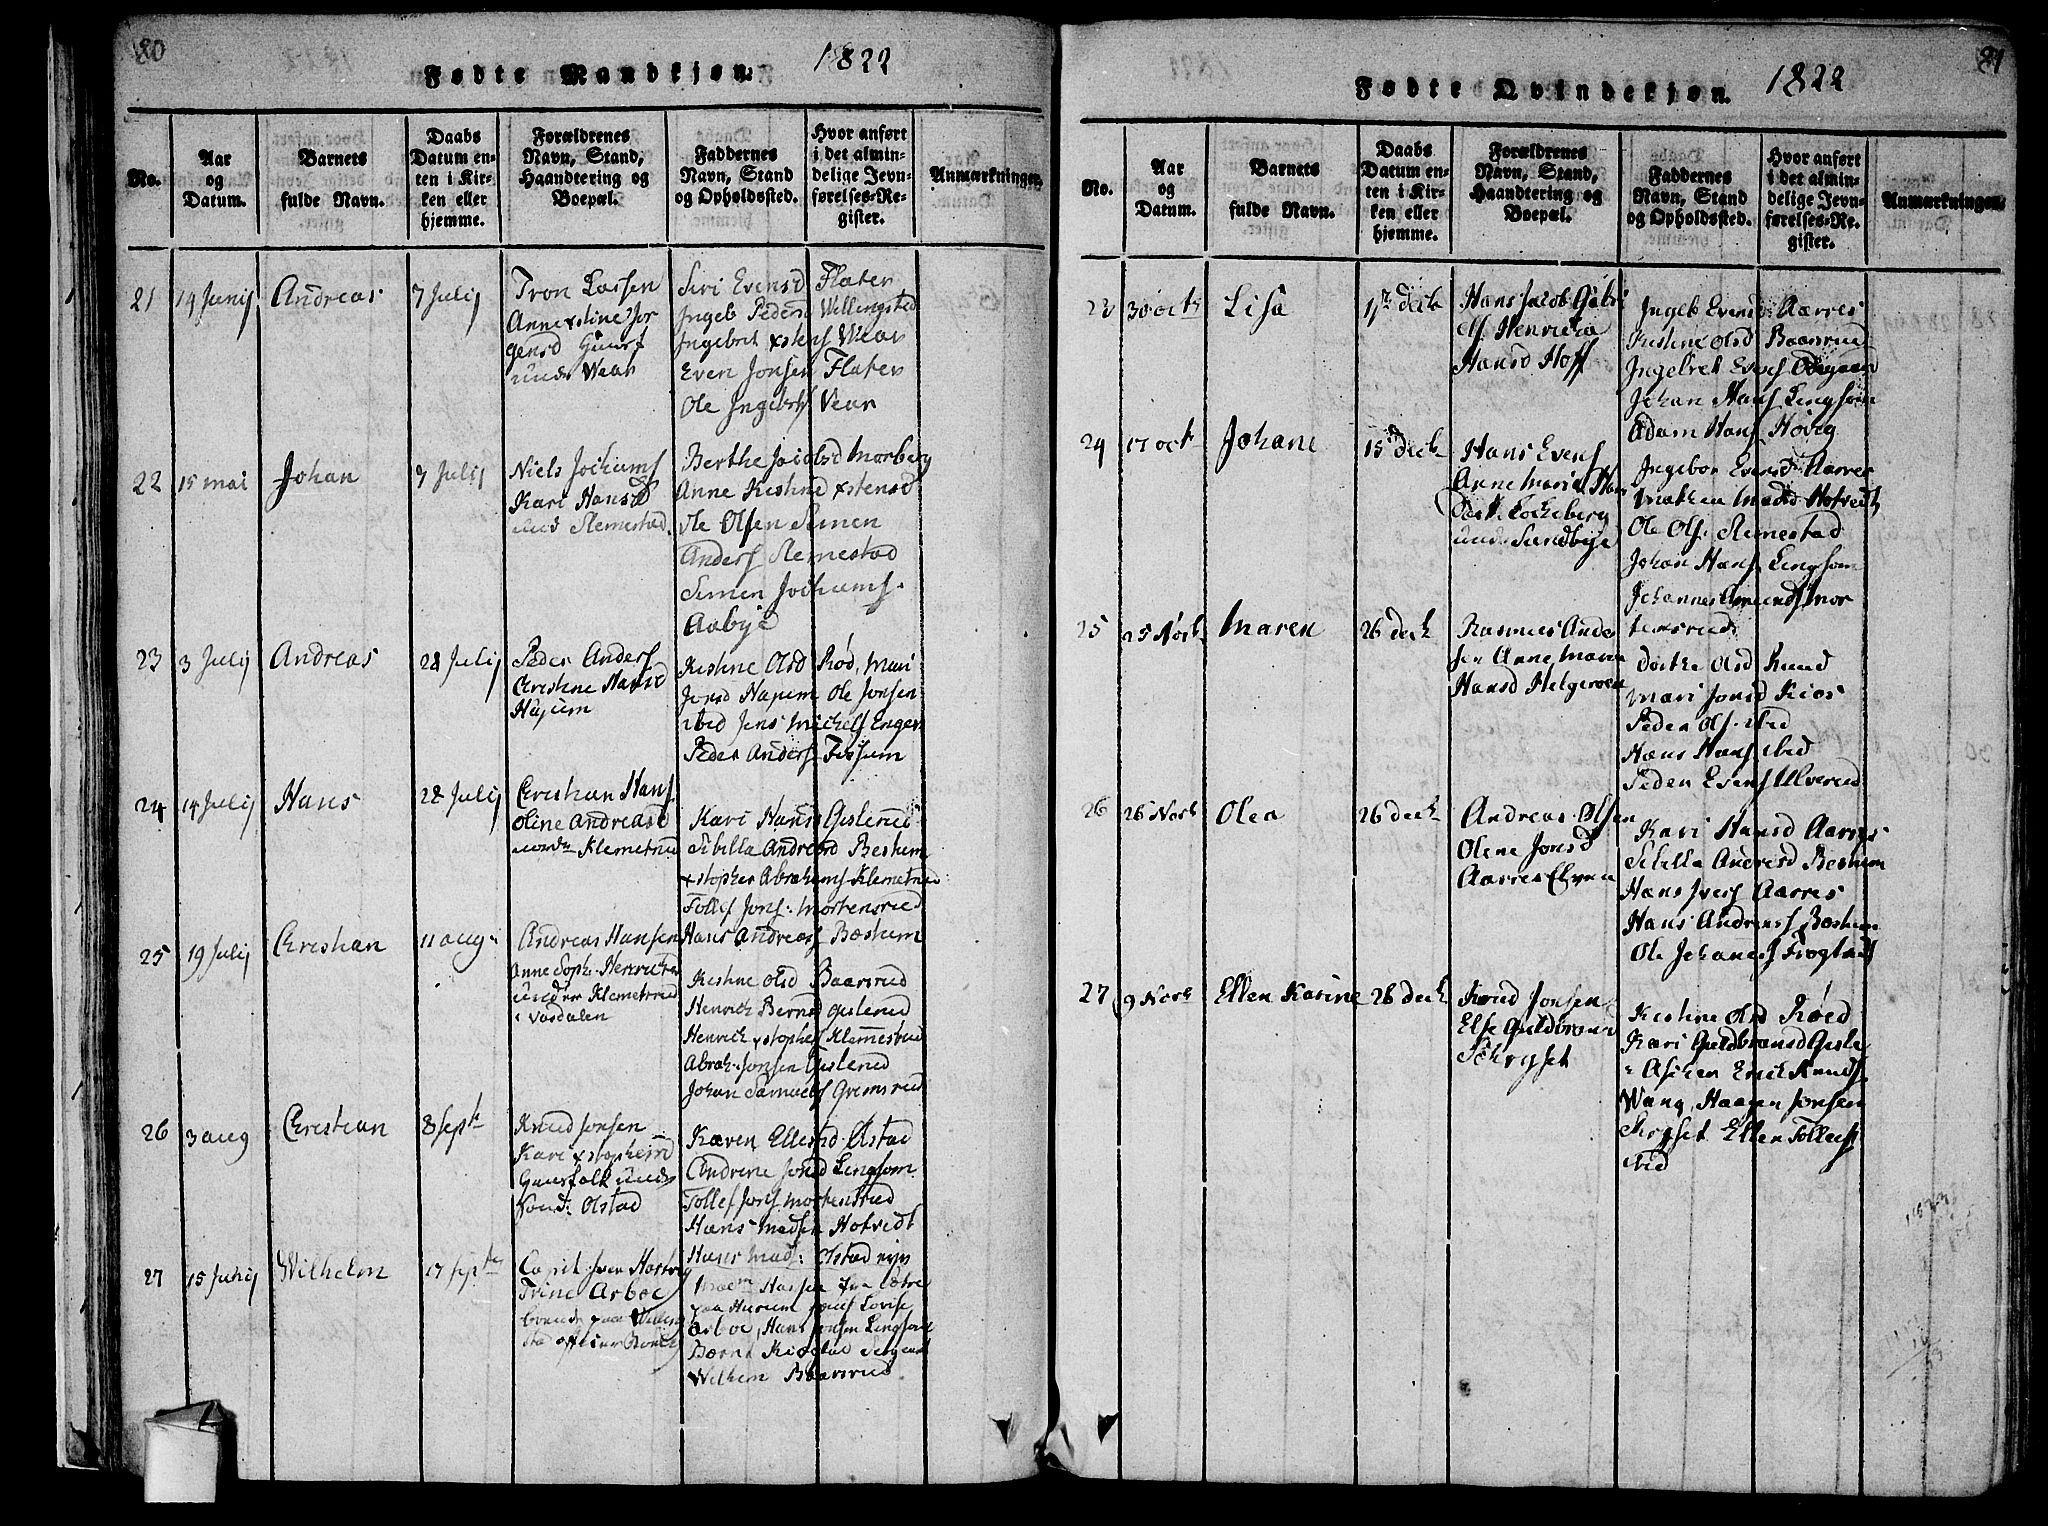 80
Fødte Mandkjøn. 1822
No.
Aar og Datum.
Barnets fulde Navn.
Daabs Datum enten i Kirken eller hjemme.
Forældrenes Navn, Stand, Haandtering og Boepæl.
Faddernes Navn, Stand og Opholdssted.
Hvor anført i det almindelige Jevnførelses-Register.
Anmærkninger.
21 14 Junij Andreas 7 Julij
Tron Larsen
Anne xstine Jør
gensd Gaasf
unde Wear
Siri Evensd Flater
Ingeb Pedersd Willingstad
Ingebret xstens Wear
Even Jonsen Flater
Ole Ingebrts Vear
22 15 mai Johan 7 Julij
Niels Jochums
Kari Hansd
und Slemestad
Berthe Jacobsd Morberg
Anne Kistine xstensd
Ole Olsen Simen
Anders Slemestad
Simen Jochums
Aabye
23 3 Julij Andreas 28 Julij
Peder Anders
Christine Hansd
Hajum
Kistine Olsd Rød, Mari
Jensd Hajum Ole Jonsen
ibid Jens Michels Enger
Peder Anders Fossum
24 14 Julij Hans 28 Julij
Christian Hans
Oline Andreasd
nordre Klemetrud
Kari Hansd Gislerud
Sibilla Andreasd Beshem
xstopher Abrahams Klemetrud
Tollef Jons: Mortensrud
Hans Andreas Boshem
25 19 Julij Christian 11 aug
Andreas Hansen
Anne Soph. Henrichs
under Klemetsrud
i Vasdalen
Kistine Olsd Baarsrud
Henrich Bernd Gislerud
Henrich xstophes Klemetsrud
Abrah. Jonsen Gislerud
Johan Samuels Grimsrud
26 3 aug Christian 8 Septe
Knud Jonsen
Kari xstophersd
Gaasfolk unde
Nord: Olstad
Karen Ellesd Olstad
Andrine Jonsd Lingsom
Tollef Jons Mortensrud
Hans Madsen Hotvedt
Hans Mads: Olstad
27 15 Junij Wilhelm 17 septe
Capit: Iver
Trine Arboe
boende paa Willing
stad
paa Hurum Lovise
Arboe, Hans Jonsen Lingsom
Kiøstad Sergeant
Wilhem Baarsrud
81
Fødte Qvindekjøn. 1822
No.
Aar og Datum.
Barnets fulde Navn.
Daabs Datum enten i Kirken eller hjemme.
Forældrenes Navn, Stand, Haandtering og Boepæl.
Faddernes Navn, Stand og Opholdssted.
Hvor anført i det almindelige Jevnførelses-Register.
Anmærkninger.
23 30 octr Lisa 1ste decb
Hans Jacob Gabri
els Henricha
Hansd Hoff
Ingeb Evensd Aarres
Kistine Olsd Baarsrud
Ingebret Evens Ødegaard
Johan Hans Lingsom
Adam Hans Høvig
24 17 octr Johane 15 decb
Hans Evens
Anne Maria Han
under Sundbye
Ingebor Evensd Aarres
Makken Madsd Hotvedt
Ole Ols. Slemestad
Johan Hans Lingsom
Johannes Amunds Mor
tensrud
25 25 Novb Maren 26 decb
Rasmus Ander
sen Anne Maria
Hansd Helgeroen
Dorthe Olsd Rund
Mari Jonsd Kios
Peder Ols. ibid
Hans Hans ibid
Peder Evens Ulverud
26 26 Novb Olea 26 decb
Andreas Olsen
Olene Jonsd
Aarres Elven
Kari Hansd Aarres
Sibilla Andresd Boshem
Hans Ivers Aarres
Hans Andreas Boshem
Ole Johanes Frogtad
27 9 Novb Ellen Karine 26 decb
Knud Jonsen
Else Guldbransd
Schryset
Kistine Olsd Røed
Kari Guldbransd Gisle
Erich Knuds
Wang, Haagen Jonsen
Skryset Ellen Tollefs
ibid